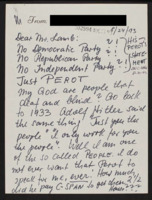 8/24/93
Dear Mr. Lamb:
No Democratic Party
No Republican Party
No Independent Party
Just PEROT
My God are people that
deaf and blind? Go back
to 1933 Adolf Hitler said
the same thing. Just you the
people "I only work for you
the people" Well I am one
of his so called People. I do
not ever want that Perot to
speak for me, ever. How much
did he pay C-SPAN to get them